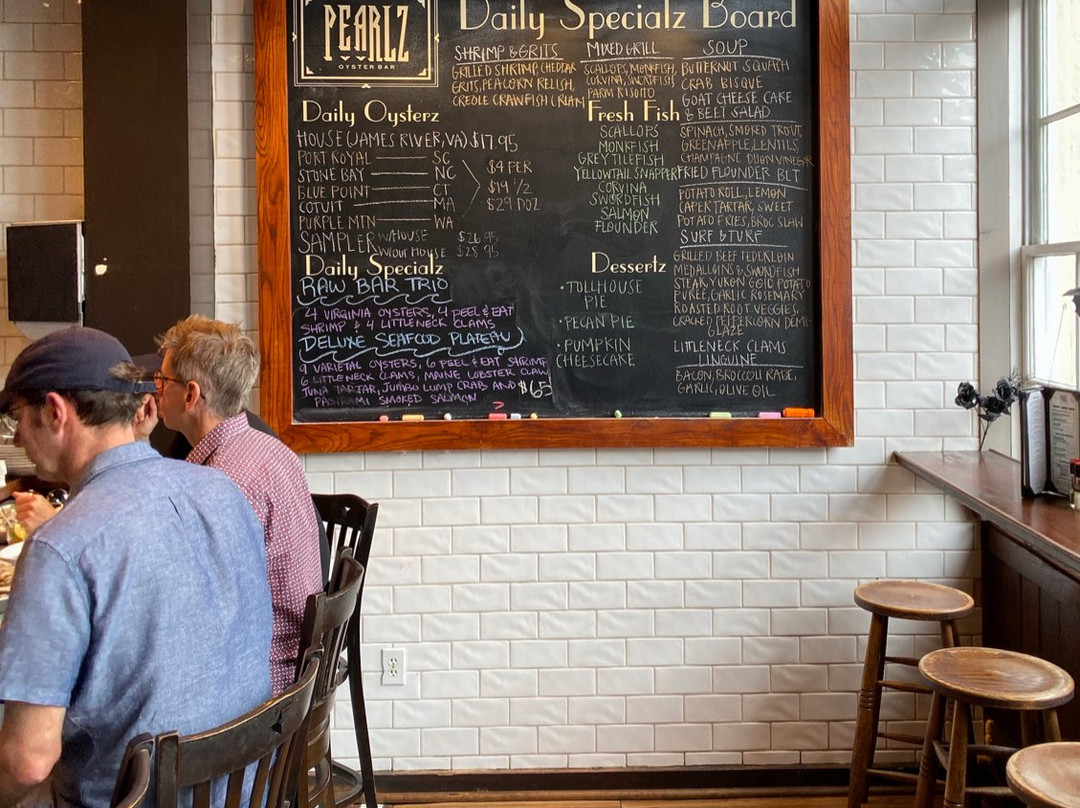 PEARLZ
OYSTER BAR
Daily Specialz Board
SHRIMP & GRITS
GRILLED SHRIMP, CHEDDAR
GRITS, PEACORN RELISH,
CREOLE CRAWFISH CREAM
MIXED GRILL
SCALLOPS, MONKFISH,
CORVINA, SWORDFISH
PARM RISOTTO
SOUP
BUTTERNUT SQUASH
CRAB BISQUE
GOAT CHEESE CAKE
& BEET SALAD
SPINACH, SMOKED TROUT,
GREEN APPLE, LENTILS,
CHAMPAGNE DIJON VINEGAR
FRIED FLOUNDER BLT
POTATO ROLL, LEMON
CAPER TARTAR, SWEET
POTATO FRIES, BROC SLAW
SURF & TURF
GRILLED BEEF TEDERLOIN
MEDALLIONS & SWORDFISH
STEAK, YUKON GOLD POTATO
PUREE, GARLIC ROSEMARY
ROASTED ROOT VEGGIES,
CRACKED PEPPERCORN DEMI-
GLAZE
LITTLENECK CLAMS
LINGUINE
BACON, BROCCOLI RABE,
GARLIC, OLIVE OIL
Daily Oysterz
HOUSE (JAMES RIVER, VA) $17.95
PORT ROYAL SC
STONE BAY NC
BLUE POINT CT
COTUIT MA
PURPLE MTN WA
$4 PER
$19 1/2
$29 DOZ
SAMPLER W/HOUSE $26.95
W/OUT HOUSE $28.95
Daily Specialz
RAW BAR TRIO
4 VIRGINIA OYSTERS, 4 PEEL & EAT
SHRIMP & 4 LITTLENECK CLAMS
DELUXE SEAFOOD PLATEAU
9 VARIETAL OYSTERS, 6 PEEL & EAT SHRIMP,
6 LITTLENECK CLAMS, MAINE LOBSTER CLAW
TUNA TARTAR, JUMBO LUMP CRAB AND $65
PASTRAMI SMOKED SALMON
Fresh Fish
SCALLOPS
MONKFISH
GREY TILEFISH
YELLOWTAIL SNAPPER
CORVINA
SWORDFISH
SALMON
FLOUNDER
Dessertz
• TOLLHOUSE
PIE
• PECAN PIE
• PUMPKIN
CHEESECAKE